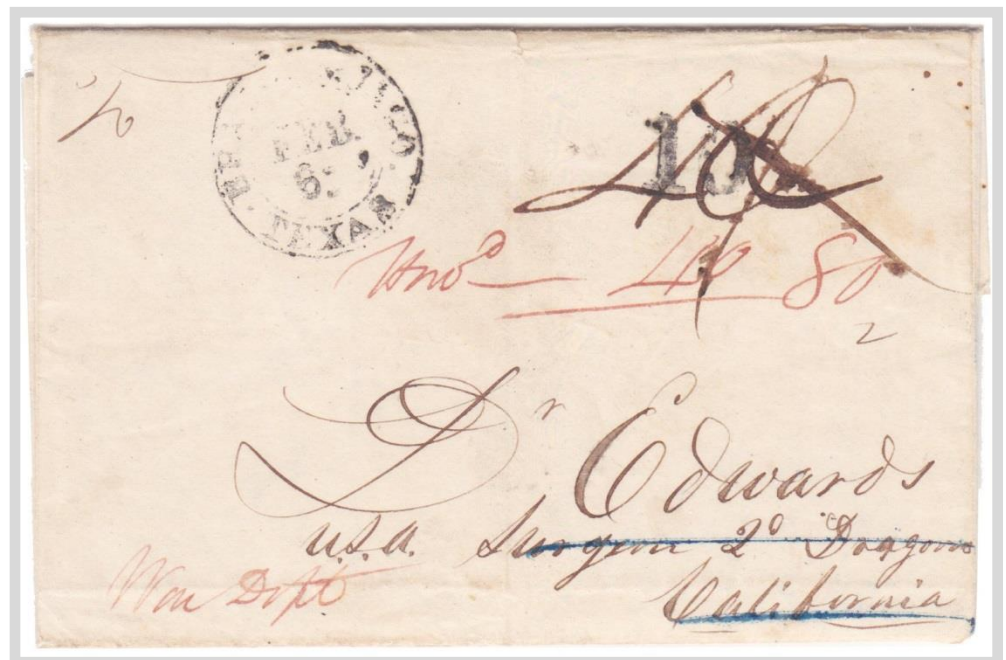 FEB
6
TEXAS
10
40
40 80
2
Dr Edwards
U.S.A. Surgeon 2d Dragoons
California
War Dept